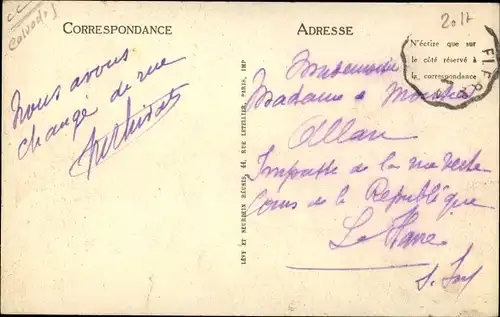 cc
Calvados
CORRESPONDANCE
ADRESSE
2017
N'écrire que sur
le côté réservé à
la correspondance
FLERS
Nous avons
changé de rue
Mademoiselle
Madame &
Allan
Impasse de la rue verte
Cours de la République
Le Havre
S. Inf
LÉVY ET NEURDEIN RÉUNIS, 44, RUE LETELLIER, PARIS, IMP